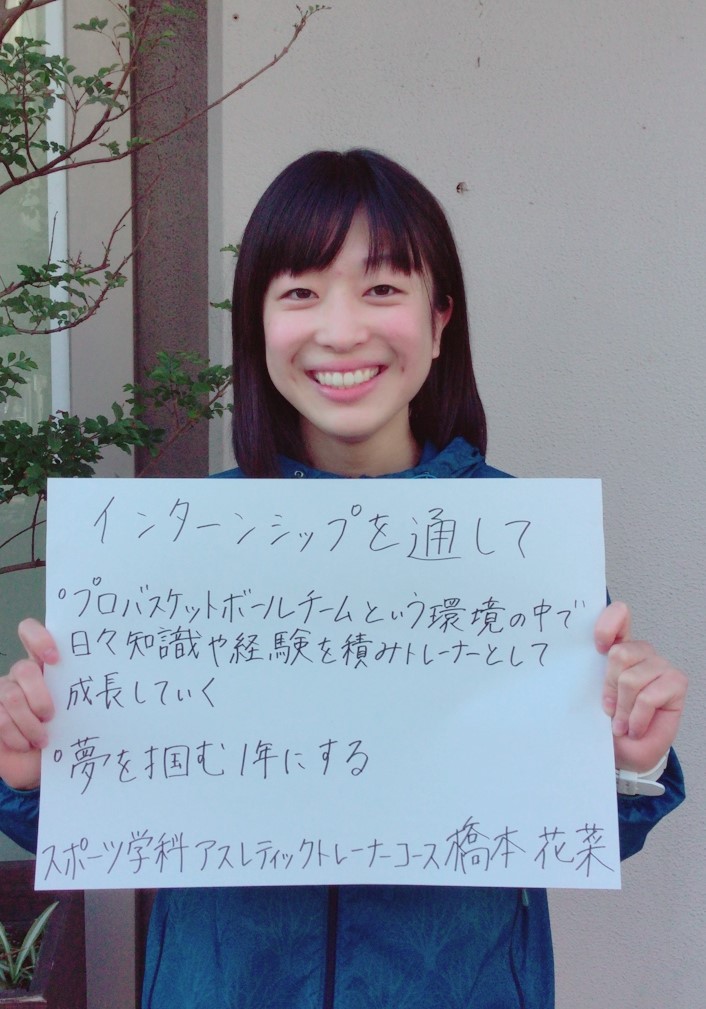 インターンシップを通して
°プロバスケットボールチームという環境の中で
日々知識や経験を積みトレーナーとして
成長していく
°夢を掴む1年にする
スポーツ学科アスレティックトレーナーコース橋本 花菜